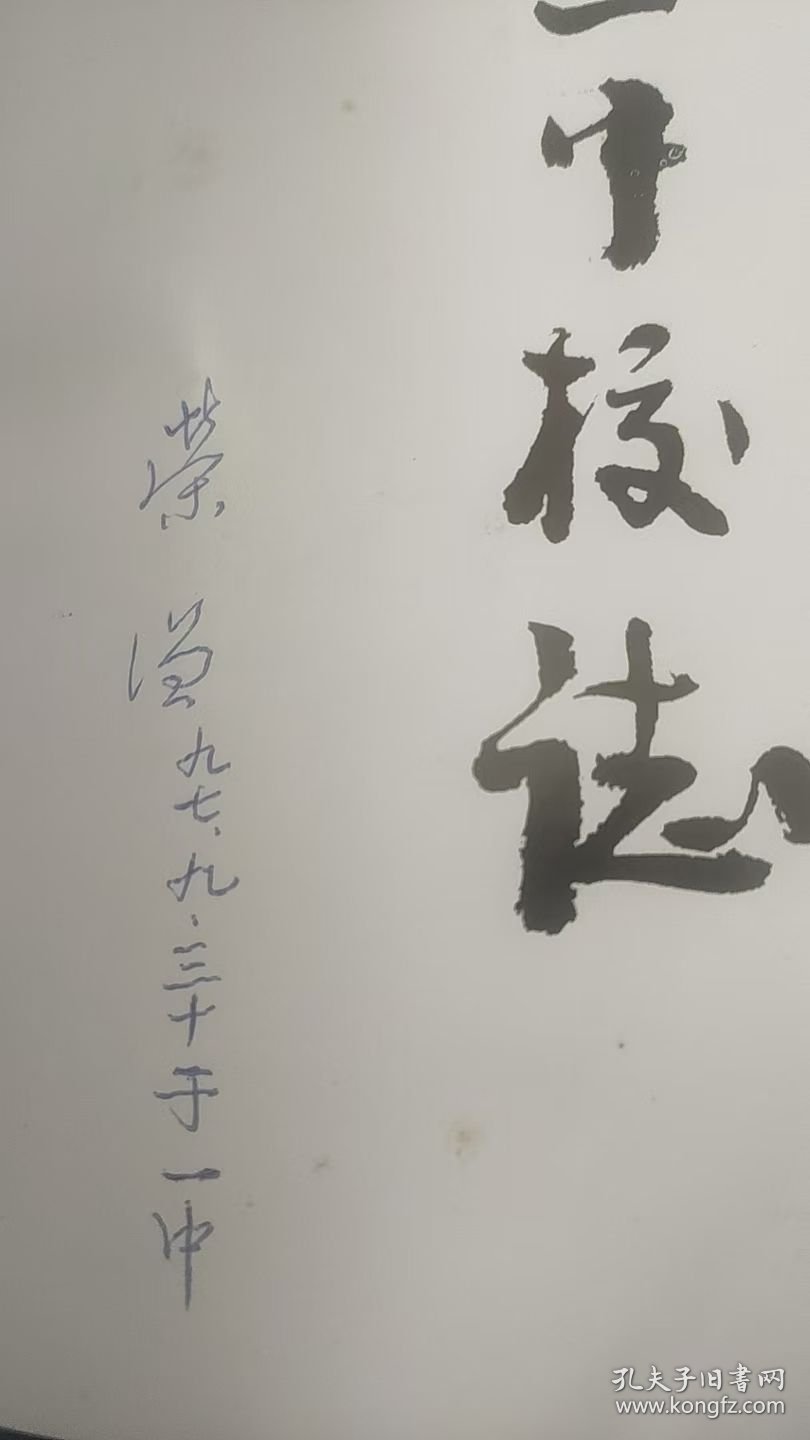 一中校志
荣
九七、九、三十于一中
孔夫子旧书网
www.kongfz.com